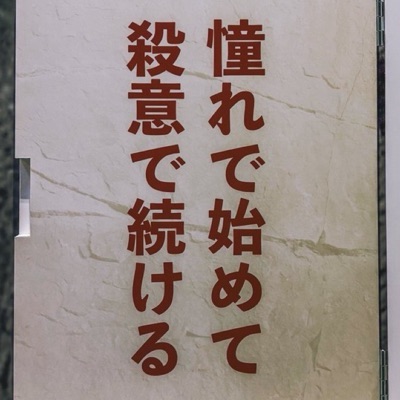 憧れで始めて
殺意で続ける